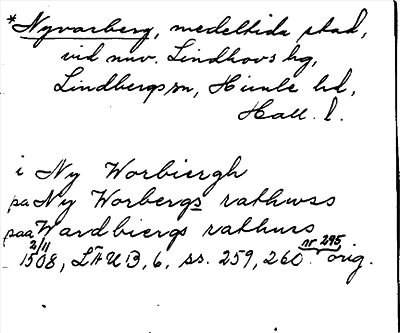 *Nyvarberg, medeltida stad,
vid nuv. Lindhovs hg,
Lindbergs sn, Himle hd,
Hall. l.
i Ny Worbiergh
pa Ny Worbergs rathwss
paa Wardbiergs rathws
2/11 nr 295
1508, LÄUB, 6, ss. 259, 260. orig.